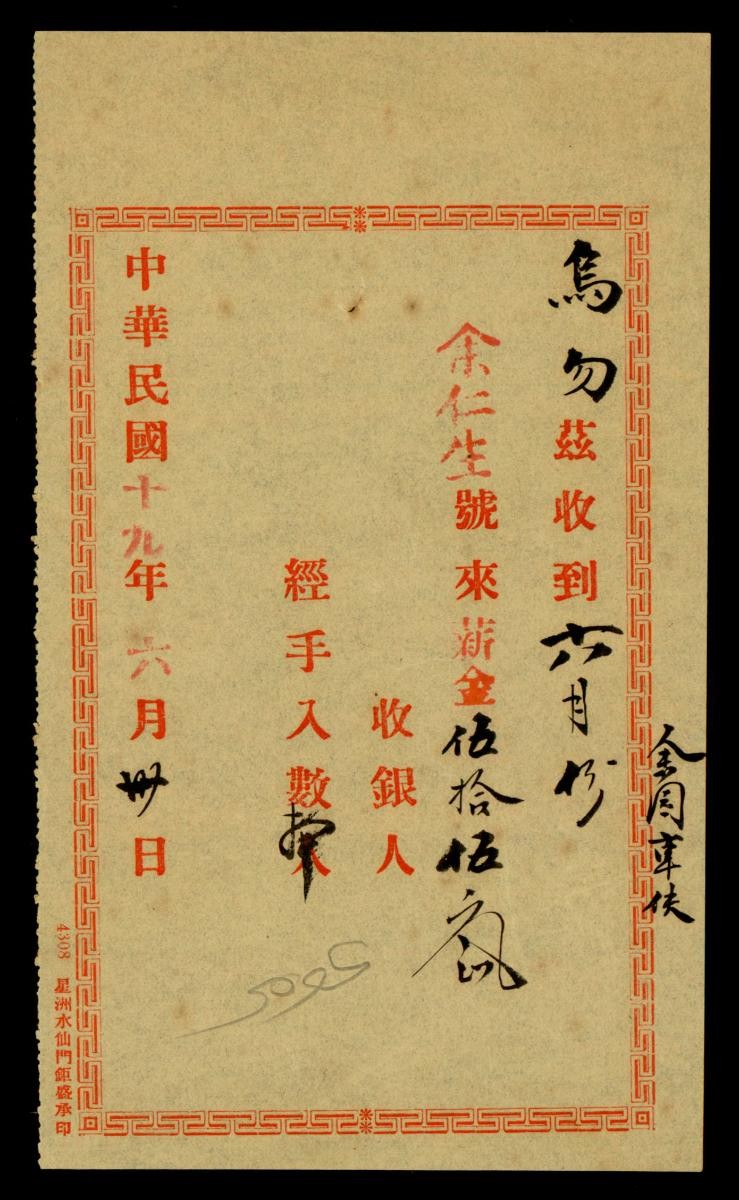 余園車伕
烏勿茲收到六月份
余仁生號來薪金伍拾伍
收銀人
經手入數人
中華民國十九年六月卅日
4308 星洲水仙門鉅盛承印